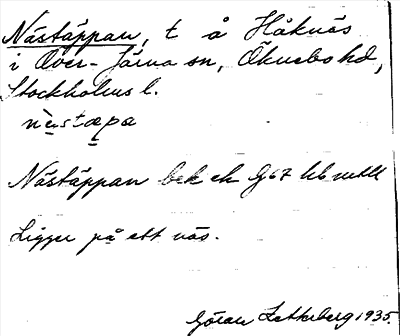 Nästäppan, t å Håknäs
i Över-Järna sn, Öknebo hd,
Stockholms l.
nästäpa
Nästäppan bek ek G67
Ligger på ett näs.
Göran Zetterberg 1935.